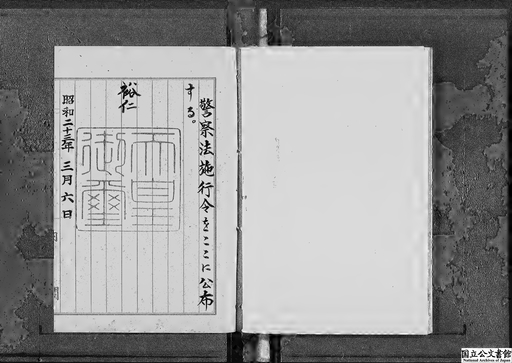 警察法施行令をここに公布
する。
裕仁
天皇
御璽
昭和二十三年三月六日
国立公文書館
National Archives of Japan